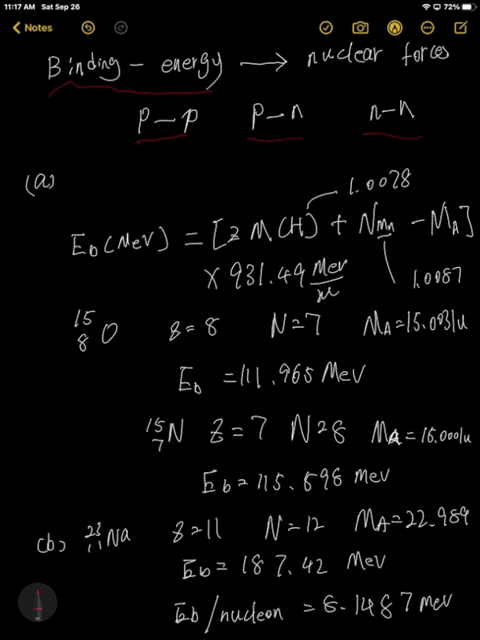 11:17 AM Sat Sep 26 72%
Notes
Binding - energy → nuclear forces
p - p p - n n - n
(a)
1.0078
Eb (MeV) = [Z M(H) + Nmn - MA]
× 931.49 MeV/u
1.0087
15 8 O z = 8 N = 7 MA = 15.0031u
Eb = 111.965 MeV
15 7 N Z = 7 N = 8 MA = 15.0001u
Eb = 115.598 MeV
(b) 23 11 Na Z = 11 N = 12 MA = 22.989
Eb = 187.42 MeV
Eb/nucleon = 8.1487 MeV